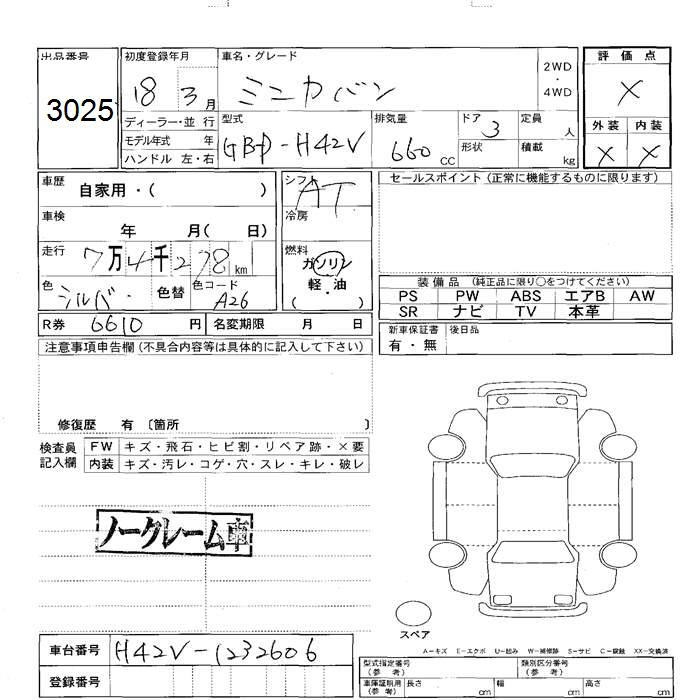 出品番号
3025
初度登録年月
18 3月
ディーラー・並行
モデル年式 年
ハンドル 左・右
車名・グレード
ミニカバン
2WD
・
4WD
型式
GBD-H42V
排気量
660 CC
ドア 3
形状
定員 人
積載 kg
評価点
X
外装 内装
X X
車歴
自家用・( )
車検
年 月( 日)
走行
7万4千278km
色
シルバ.
色替
色コード
A26
シフト
AT
冷房
燃料
ガソリン
軽・油
( )
R券 6610 円 名変期限 月 日
セールスポイント (正常に機能するものに限ります)
装備品 (純正品に限り○をつけてください)
PS PW ABS エアB AW
SR ナビ TV 本革
新車保証書
有・無
後日品
注意事項申告欄 (不具合内容等は具体的に記入して下さい)
修復歴 有 〔箇所 〕
検査員
記入欄
FW キズ・飛石・ヒビ割・リペア跡・×要
内装 キズ・汚レ・コゲ・穴・スレ・キレ・破レ
ノークレーム車
スペア
A-キズ E-エクボ U-凹み W-補修跡 S-サビ C-腐蝕 XX-交換済
車台番号 H42V-1232606
登録番号
型式指定番号
(参考)
類別区分番号
(参考)
車庫証明用
(参考)
長さ cm 幅 cm 高さ cm